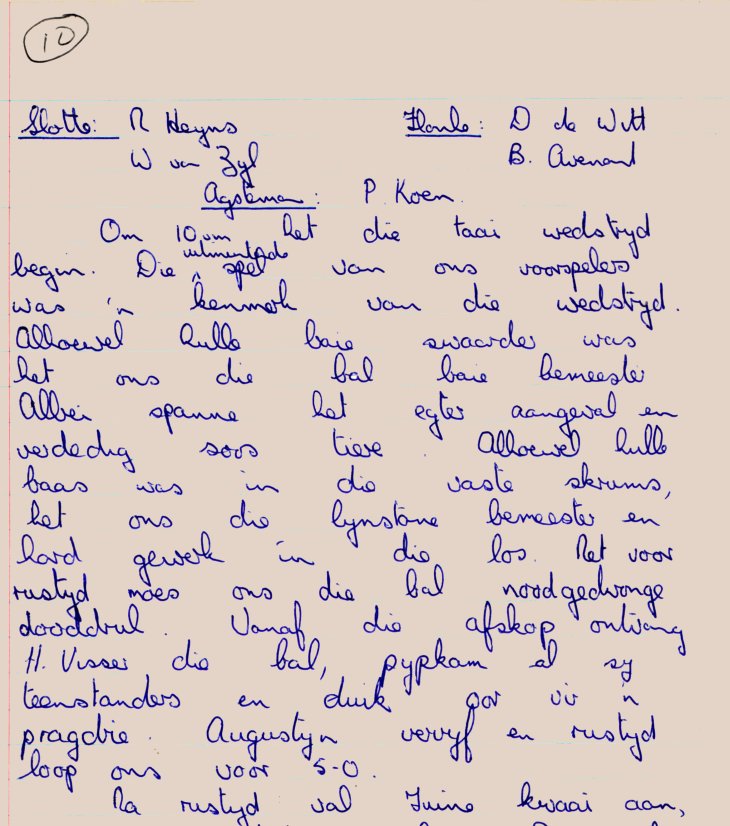 10
Slotte: R Heyns Flanke: D de Witt
W van Zyl B. Avenant
Agsteman: P. Koen.
Om 10 vm het die taai wedstryd
uitmuntende
begin. Die ^ spel van ons voorspelers
was 'n kenmerk van die wedstryd.
Alhoewel hulle baie swaarder was
het ons die bal baie bemeester
Albei spanne het egter aangeval en
verdedig soos tiere. Alhoewel hulle
baas was in die vaste skrums,
het ons die lynstane bemeester en
hard gewerk in die los. Net voor
rustyd moes ons die bal noodgedwonge
dooddruk. Vanaf die afskop ontvang
H. Visser die bal, pypkam al sy
teenstanders en duik oor vir 'n
pragdrie. Augustyn vervyf en rustyd
loop ons voor 5-0.
Na rustyd val June kwaai aan,